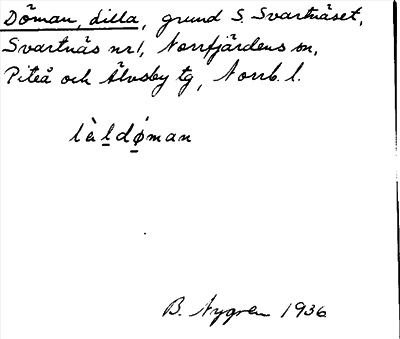 Döman, dilla, grund S. Svartnäset,
Svartnäs nr1, Norrfjärdens sn,
Piteå och Älvsby tg, Norrb. l.
lὰldǿman
B. Nygren 1936